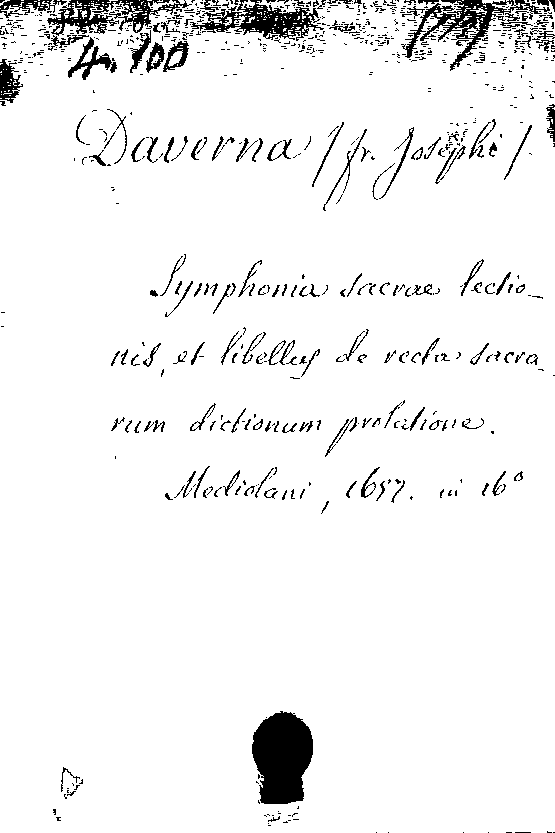 4n 100
Daverna / fr. Josephi /
Symphonia sacrae lectio_
nis, et libellus de recta sacra_
rum dictionum prolatione.
Mediolani, 1657. in 16°